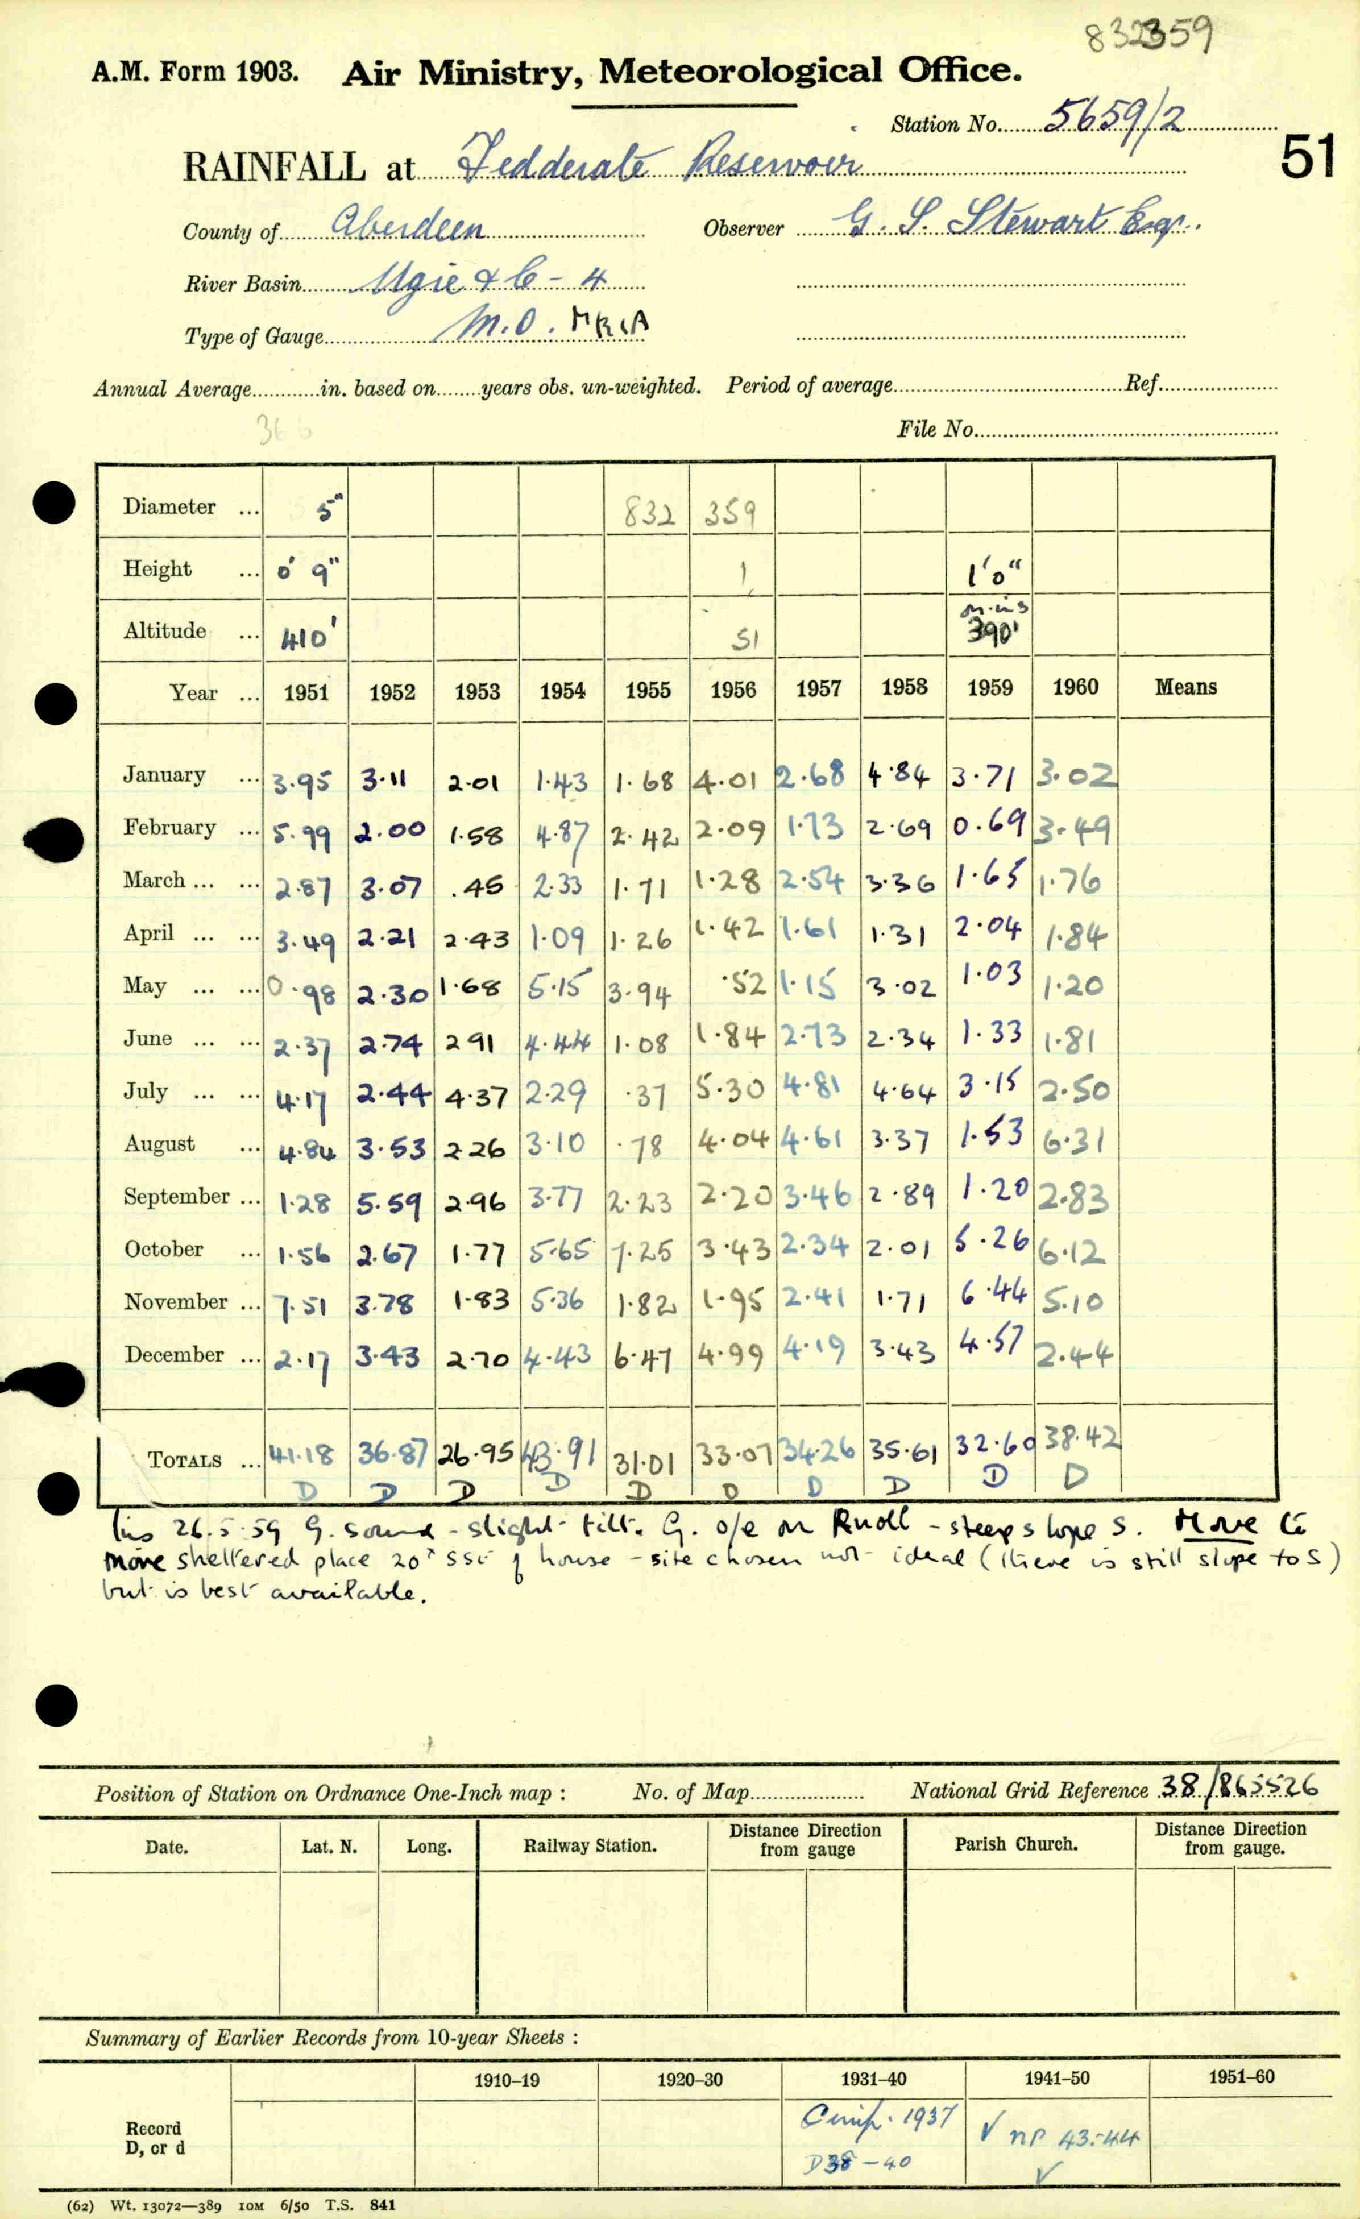 832359
A.M. Form 1903. Air Ministry, Meteorological Office.
Station No. 5659/2
RAINFALL at Fedderate Reservoir 51
County of Aberdeen Observer G. S. Stewart Esqr.
River Basin Ugie & C - 4
Type of Gauge M.O. MK1A
Annual Average in. based on years obs. un-weighted. Period of average Ref.
366
File No.
Diameter ... 5" 832 359
Height ... 0' 9" 1 1'0"
Altitude ... 410' 51 390'
Year ... 1951 1952 1953 1954 1955 1956 1957 1958 1959 1960 Means
January ... 3.95 3.11 2.01 1.43 1.68 4.01 2.68 4.84 3.71 3.02
February ... 5.99 2.00 1.58 4.87 2.42 2.09 1.73 2.69 0.69 3.49
March ... ... 2.87 3.07 .45 2.33 1.71 1.28 2.54 3.36 1.65 1.76
April ... ... 3.49 2.21 2.43 1.09 1.26 1.42 1.61 1.31 2.04 1.84
May ... ... 0.98 2.30 1.68 5.15 3.94 .52 1.15 3.02 1.03 1.20
June ... ... 2.37 2.74 2.91 4.44 1.08 1.84 2.73 2.34 1.33 1.81
July ... ... 4.17 2.44 4.37 2.29 .37 5.30 4.81 4.64 3.15 2.50
August ... 4.84 3.53 2.26 3.10 .78 4.04 4.61 3.37 1.53 6.31
September ... 1.28 5.59 2.96 3.77 2.23 2.20 3.46 2.89 1.20 2.83
October ... 1.56 2.67 1.77 5.65 7.25 3.43 2.34 2.01 5.26 6.12
November ... 7.51 3.78 1.83 5.36 1.82 1.95 2.41 1.71 6.44 5.10
December ... 2.17 3.43 2.70 4.43 6.47 4.99 4.19 3.43 4.57 2.44
TOTALS ... 41.18 36.87 26.95 43.91 31.01 33.07 34.26 35.61 32.60 38.42
D D D D D D D D D D
Ins 26.5.59 G. sound - slight tilt. G. o/e on Knoll - steep slope S. Move to
more sheltered place 20x SSE of house - site chosen not ideal (there is still slope to S)
but is best available.
Position of Station on Ordnance One-Inch map : No. of Map National Grid Reference 38/865526
Date. Lat. N. Long. Railway Station. Distance Direction from gauge Parish Church. Distance Direction from gauge.
Summary of Earlier Records from 10-year Sheets :
1910–19 1920–30 1931–40 1941–50 1951–60
Record
D, or d
Comp. 1937 √ np 43-44
D38-40 √
(62) Wt. 13072—389 10M 6/50 T.S. 841